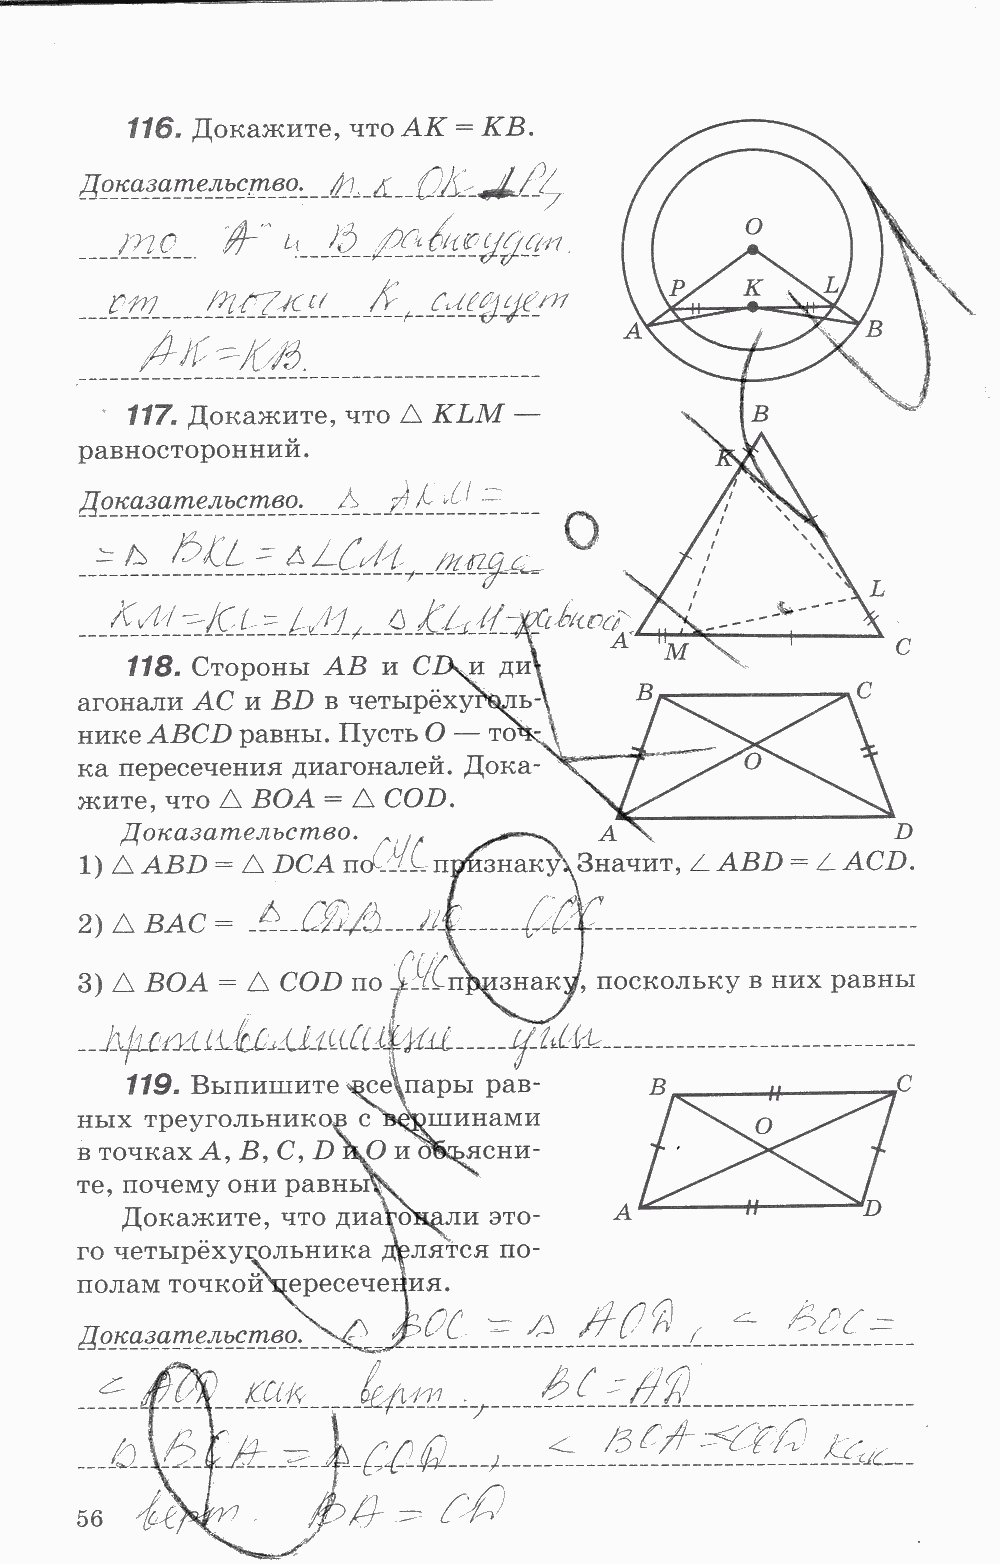 116. Докажите, что AK = KB.
Доказательство. т. к OK ⊥ PL,
то "A" и B равноудал.
от точки K, следует
AK = KB.
117. Докажите, что △ KLM —
равносторонний.
Доказательство. △ AKM =
= △ BKL = △ LCM, тогда
KM = KL = LM, △ KLM - равност
118. Стороны AB и CD и ди-
агонали AC и BD в четырёхуголь-
нике ABCD равны. Пусть O — точ-
ка пересечения диагоналей. Дока-
жите, что △ BOA = △ COD.
Доказательство.
1) △ ABD = △ DCA по СУС признаку. Значит, ∠ ABD = ∠ ACD.
2) △ BAC = △ CDB по ССС
3) △ BOA = △ COD по СУС признаку, поскольку в них равны
противолежащие углы
119. Выпишите все пары рав-
ных треугольников с вершинами
в точках A, B, C, D и O и объясни-
те, почему они равны.
Докажите, что диагонали это-
го четырёхугольника делятся по-
полам точкой пересечения.
Доказательство. △ BOC = △ AOD, < BOC =
< AOD как верт., BC = AD
△ BCA = △ COD, < BCA = < COD как
верт. BA = CD
56
O
P K L
A B
B
K
L
A M C
B C
O
A D
B C
O
A D